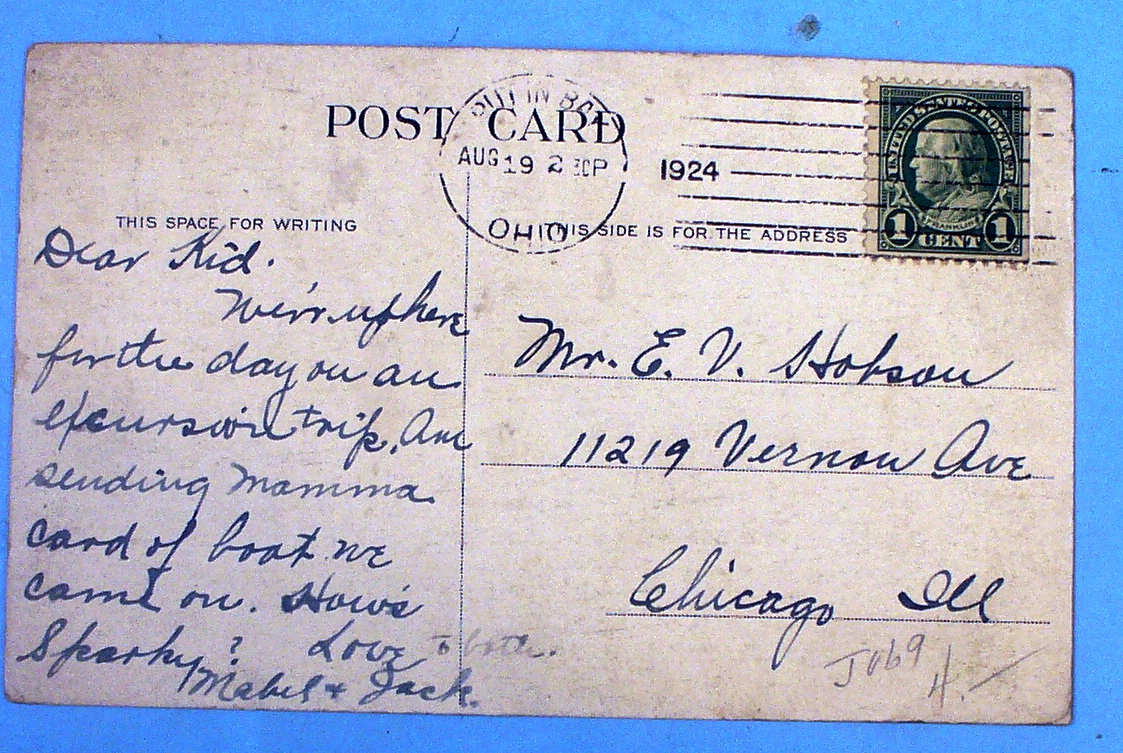 POST CARD
PUT IN BAY
AUG 19 2 30P
1924
OHIO
UNITED STATES POSTAGE
FRANKLIN
1 CENT 1
THIS SPACE FOR WRITING
THIS SIDE IS FOR THE ADDRESS
Dear Kid.
We're up here
for the day on an
excursion trip. Am
sending Mamma
card of boat we
came on. How's
Sparky? Love to both.
Mabel + Jack.
Mr. E. V. Hobson
11219 Vernon Ave
Chicago Ill